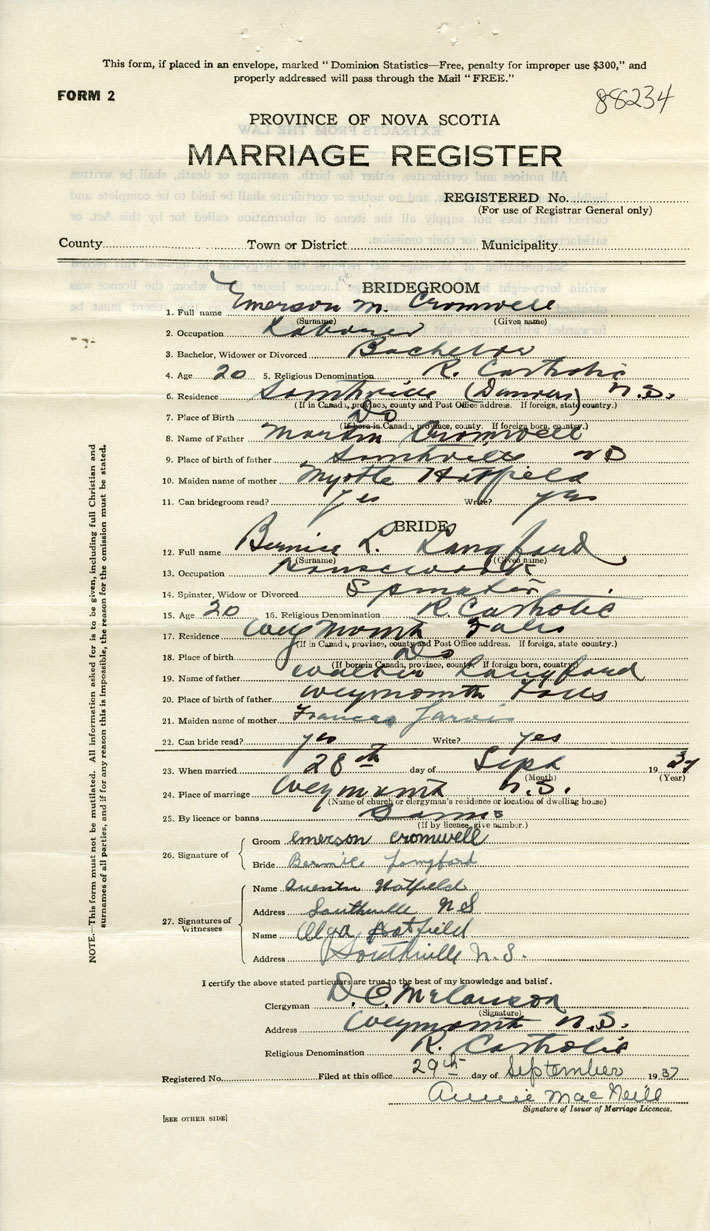 This form, if placed in an envelope, marked "Dominion Statistics—Free, penalty for improper use $300," and
properly addressed will pass through the Mail "FREE."
FORM 2
88234
PROVINCE OF NOVA SCOTIA
MARRIAGE REGISTER
REGISTERED No.
(For use of Registrar General only)
County Town or District Municipality
BRIDEGROOM
1. Full name Emerson M. Cromwell
(Surname) (Given name)
2. Occupation Laborer
3. Bachelor, Widower or Divorced Bachelor
4. Age 20 5. Religious Denomination R. Catholic
6. Residence Southville (Danvers) N.S.
(If in Canada, province, county and Post Office address. If foreign, state country.)
7. Place of Birth Do
(If born in Canada, province, county. If foreign born, country.)
8. Name of Father Martin Cromwell
9. Place of birth of father Southville NS
10. Maiden name of mother Myrtle Hatfield
11. Can bridegroom read? Yes Write? yes
BRIDE
12. Full name Bernice L. Langford
(Surname) (Given name)
13. Occupation Housework
14. Spinster, Widow or Divorced Spinster
15. Age 20 16. Religious Denomination R. Catholic
17. Residence Weymouth Falls
(If in Canada, province, county and Post Office address. If foreign, state country.)
18. Place of birth Do
(If born in Canada, province, county. If foreign born, country.)
19. Name of father Walter Langford
20. Place of birth of father Weymouth Falls
21. Maiden name of mother Frances Jarvis
22. Can bride read? yes Write? yes
23. When married 28th day of Sept 1937
(Month) (Year)
24. Place of marriage Weymouth N.S.
(Name of church or clergyman's residence or location of dwelling house)
25. By licence or banns Banns
(If by licence, give number.)
26. Signature of
Groom Emerson Cromwell
Bride Bernice Langford
27. Signatures of Witnesses
Name Hatfield
Address Southville NS
Name Hatfield
Address Southville N.S.
I certify the above stated particulars are true to the best of my knowledge and belief.
Clergyman D. C. Melanson
(Signature)
Address Weymouth N.S.
Religious Denomination R. Catholic
Registered No. Filed at this office 29th day of September 1937
Annie MacNeill
Signature of Issuer of Marriage Licences.
[SEE OTHER SIDE]
NOTE.—This form must not be mutilated. All information asked for is to be given, including full Christian and
surnames of all parties, and if for any reason this is impossible, the reason for the omission must be stated.